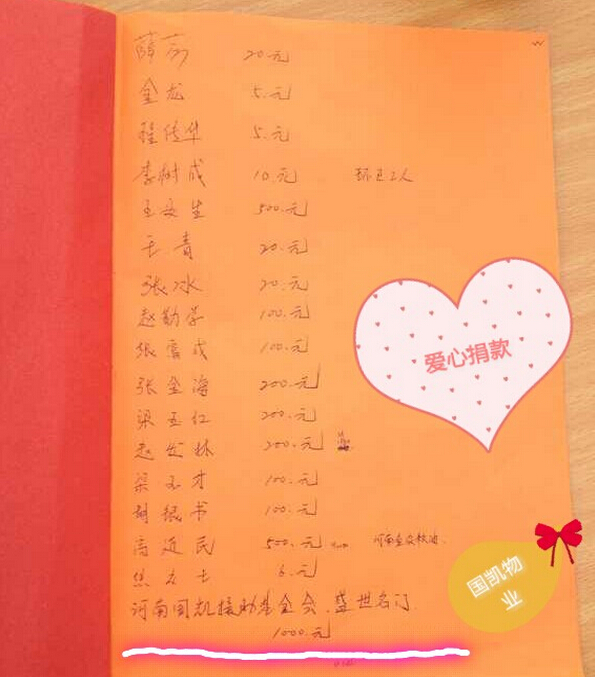 薛亮 20.元
金龙 5.元
程传华 5.元
李树成 10.元 环卫工人
王安生 500.元
王青 20.元
张冰 20.元
赵勤学 100.元
张富成 100.元
张金海 200.元
梁玉仁 200.元
赵发林 200.元
梁玉才 100.元
胡银书 100.元
高道民 500.元
焦力士 6.元
河南国凯援助基金会.盛世名门
1000.元
爱心捐款
国凯物
业